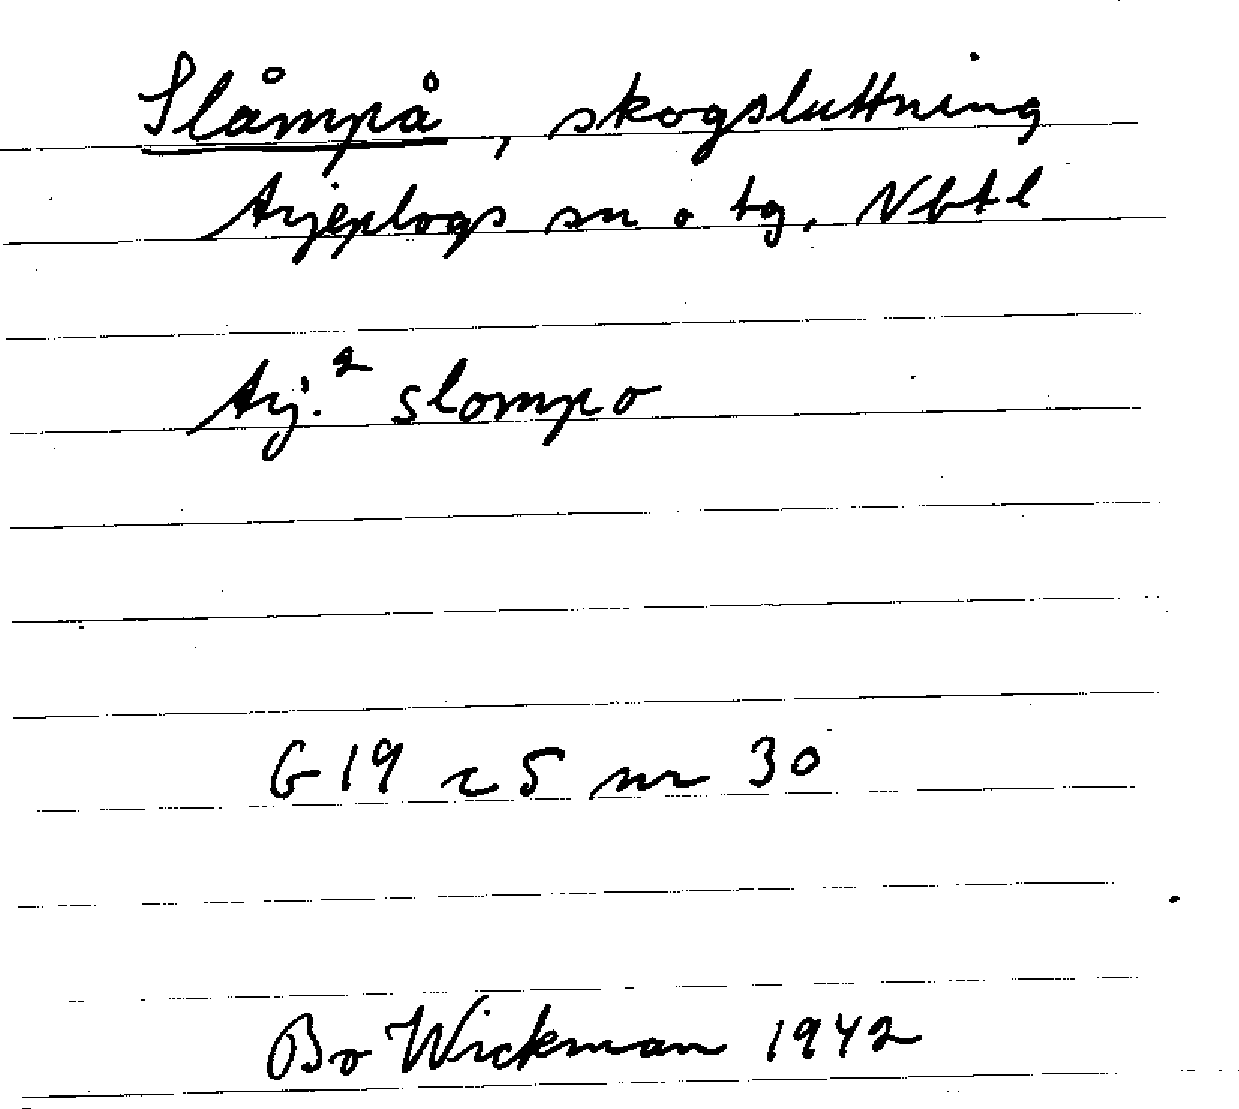 Slåmpå, skogsluttning
Arjeplogs sn o tg, Nbtl
Arj.² slompo
G19 c5 nr 30
Bo Wickman 1942